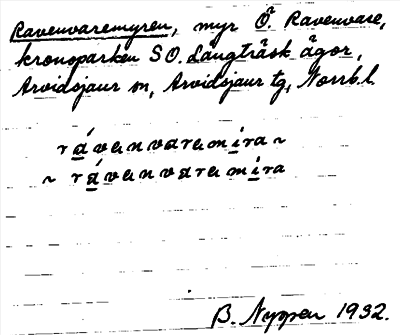 Ravenvaremyren, myr Ö. Ravenvare,
kronoparken SO. Långträsk ägor,
Arvidsjaur sn, Arvidsjaur tg, Norrb.l.
rávenvaremira ~
~ rávenvaremira
B. Nyppen 1932.